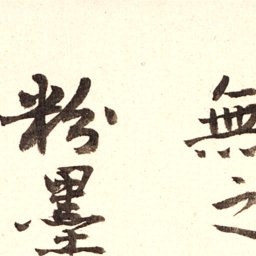 無之
粉墨